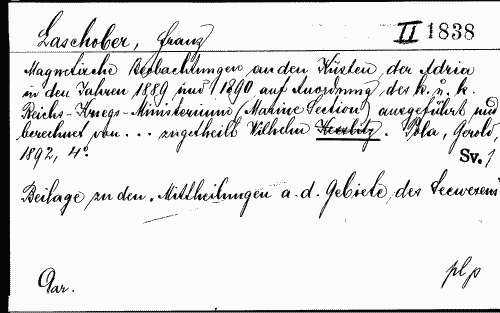 Laschober, Franz
II 1838
Magnetische Beobachtungen an den Küsten der Adria
in den Jahren 1889 und 1890 auf Anordnung des k. u. k.
Reichs-Kriegs-Ministerium (Marine Section) ausgeführt und
berechnet von... zugetheilt Wilhelm Kesslitz. Pola, Gerold,
1892, 4°.
Sv. 1
Beilage zu den "Mittheilungen a. d. Gebiete des Seewesens"